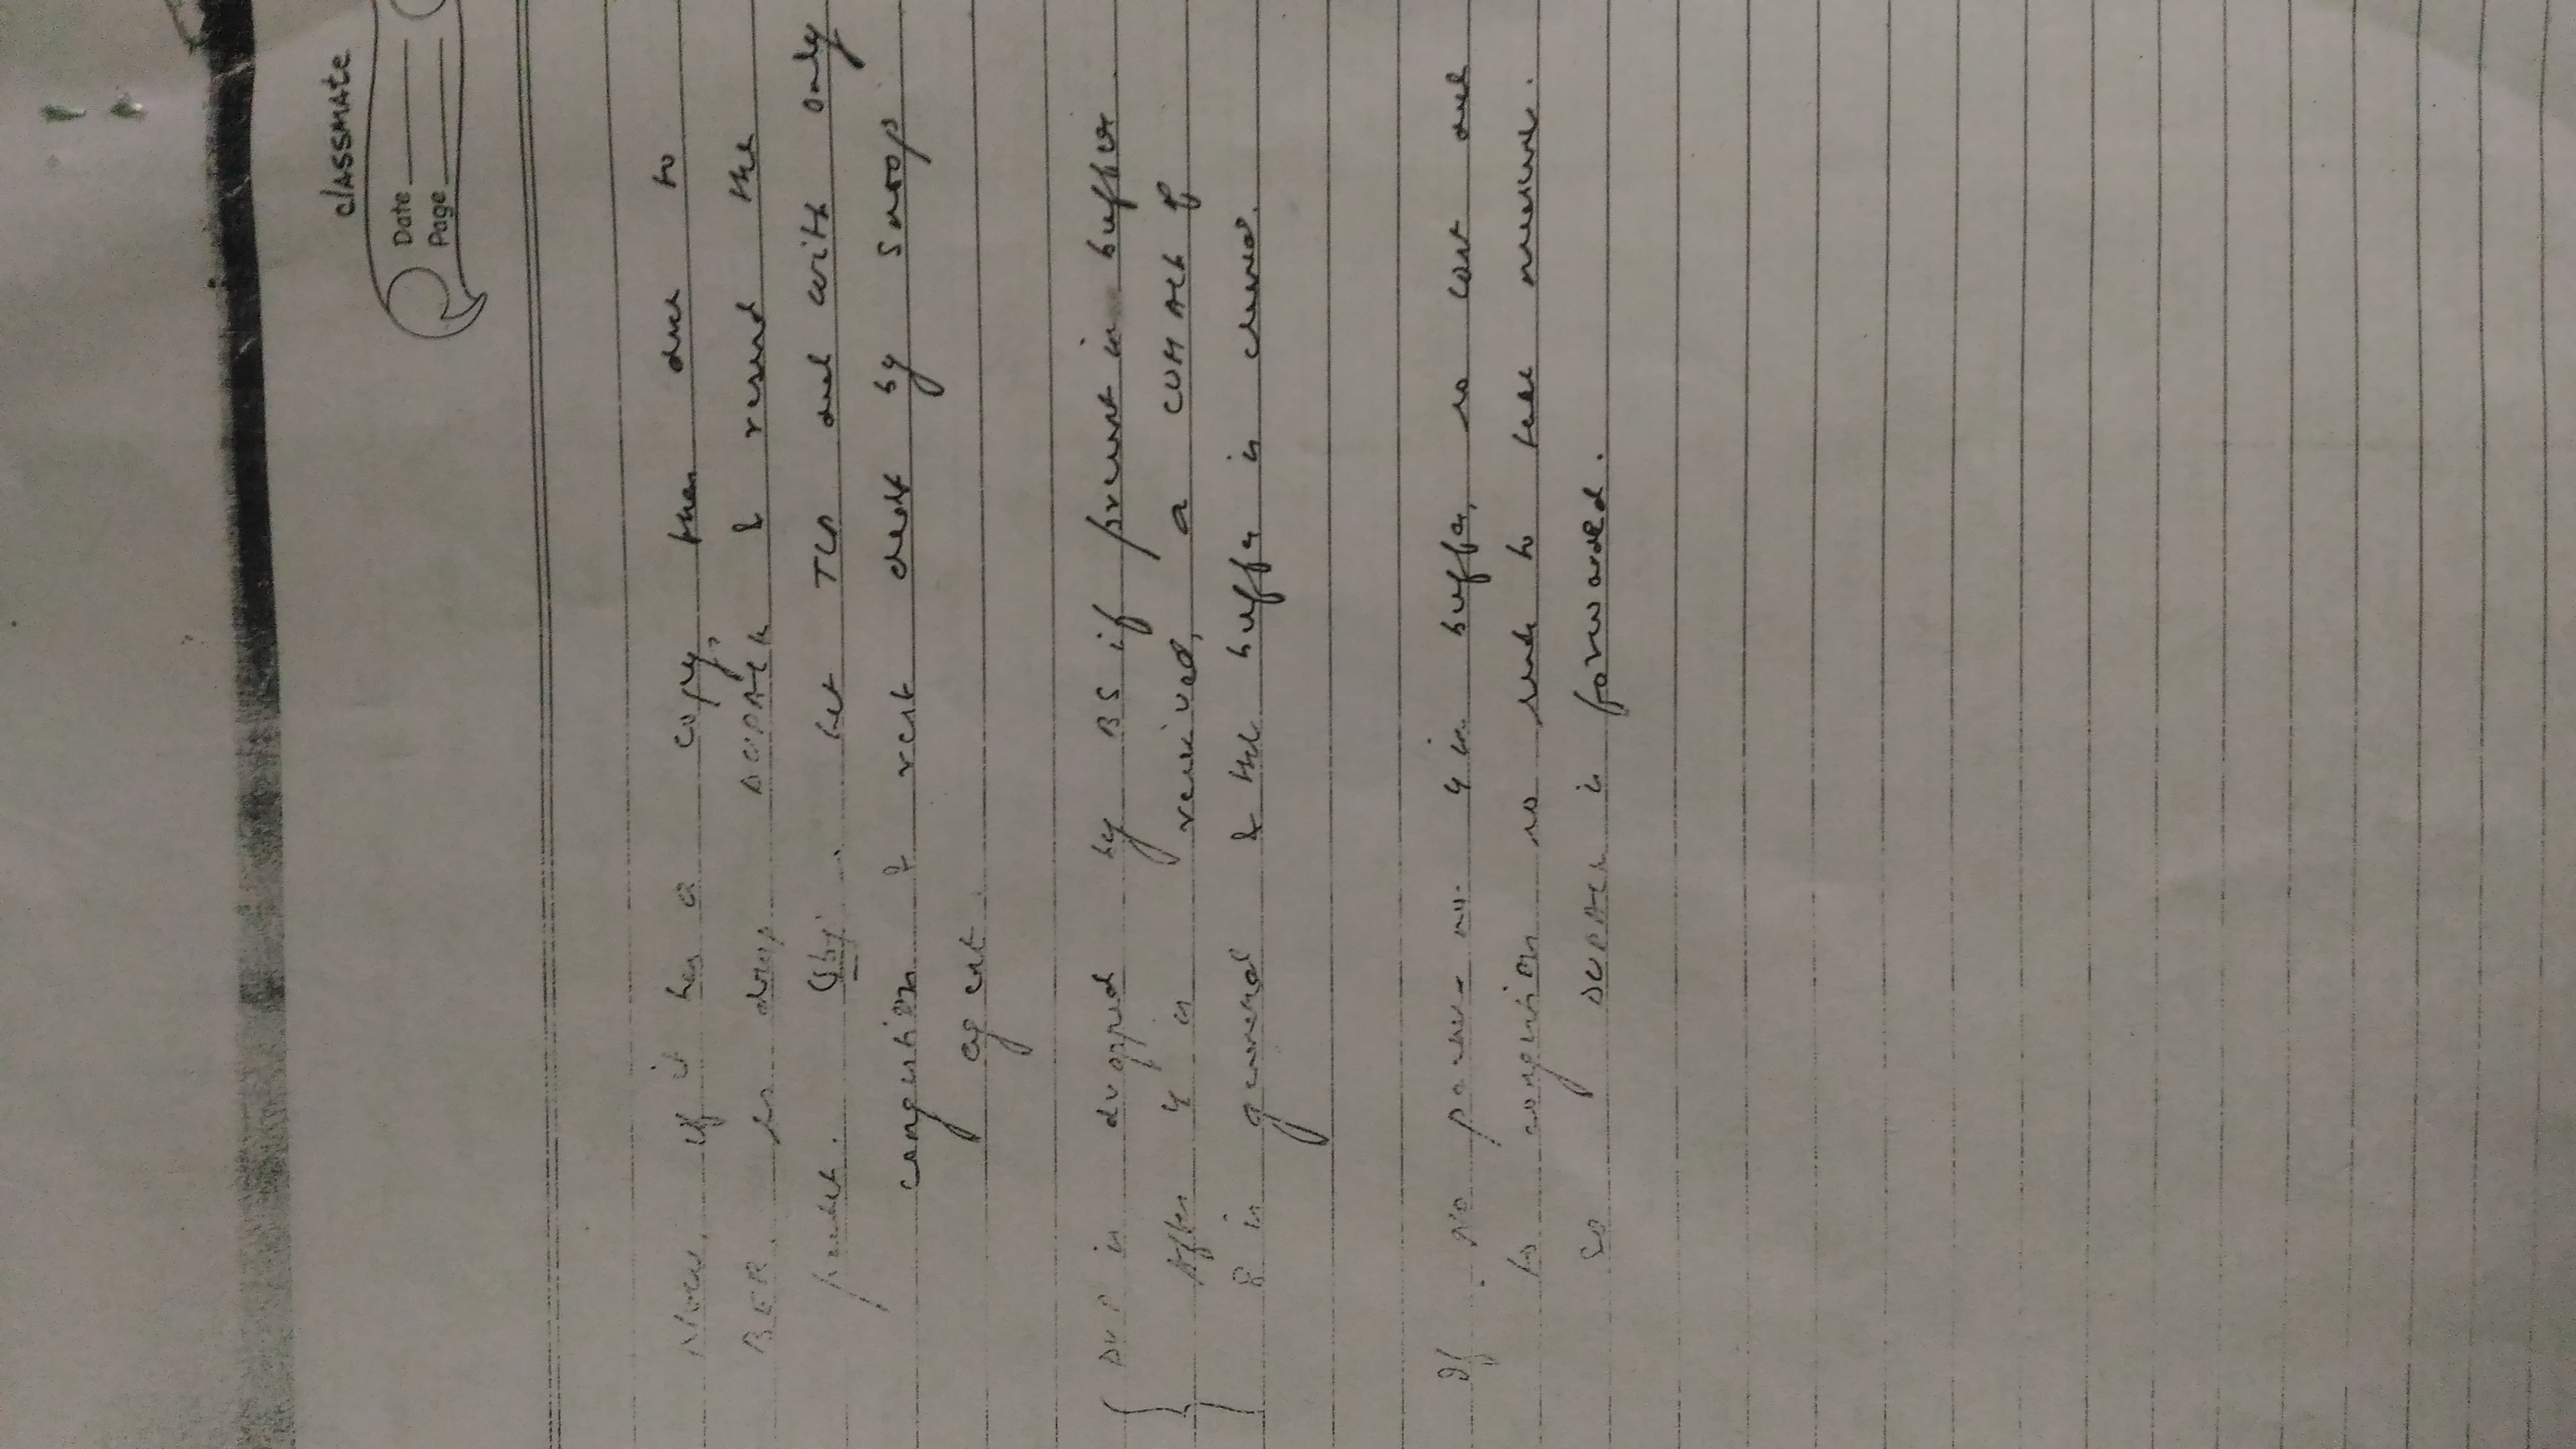 classmate
Date
Page
Now, if it has a copy, then due to
BER. so drop DUPACK & resend the
packet. Obj. Let TCP deal with only
congestion & rest dealt by snoop
agent.
DUP is dropped by BS if present in buffer
After 4 is received, a CUM ACK of
8 is general & the buffer is cleared.
If no packet no. 4 in buffer, so lost due
to congestion so to take measure.
So DUPACK is forwarded.